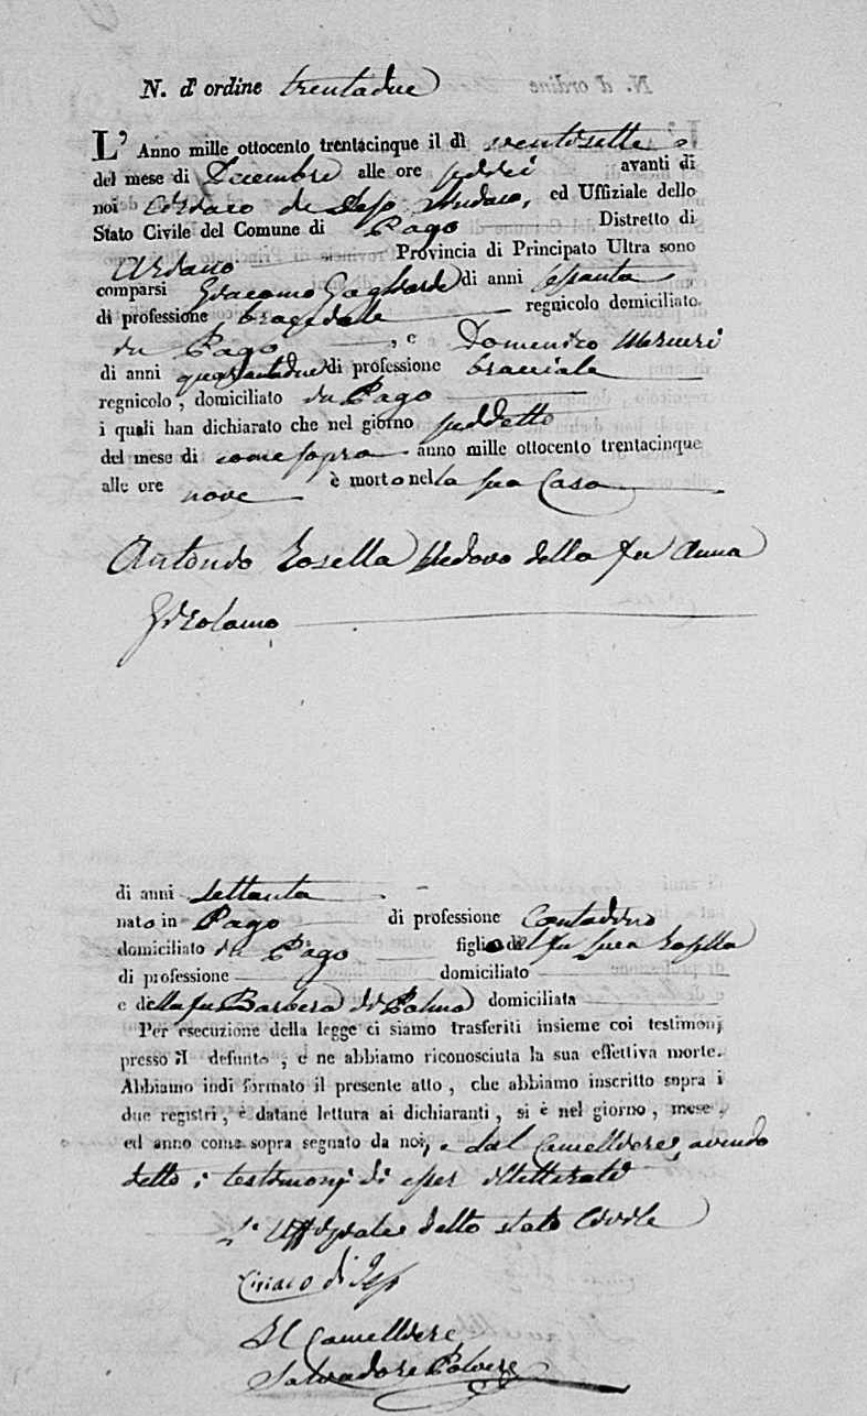 N. d' ordine trentadue
L' Anno mille ottocento trentacinque il dì ventisette
del mese di Decembre alle ore sedici avanti di
noi Ciriaco di Sindaco, ed Uffiziale dello
Stato Civile del Comune di Pago Distretto di
Ariano Provincia di Principato Ultra sono
comparsi Giacomo Gagliarde di anni sessanta
di professione bracciale regnicolo domiciliato
in Pago , e Domenico Mercuri
di anni quarantadue di professione bracciale
regnicolo , domiciliato in Pago
i quali han dichiarato che nel giorno suddetto
del mese di come sopra anno mille ottocento trentacinque
alle ore nove è morto nella sua Casa
Antonio Iosella Vedovo della fu Anna
Girolamo
di anni settanta
nato in Pago di professione Contadino
domiciliato in Pago figlio del fu Luca Iosella
di professione domiciliato
e della fu Barbera di Palma domiciliata
Per esecuzione della legge ci siamo trasferiti insieme coi testimonj
presso il defunto , e ne abbiamo riconosciuta la sua effettiva morte.
Abbiamo indi formato il presente atto , che abbiamo inscritto sopra i
due registri, e datane lettura ai dichiaranti, si è nel giorno , mese ,
ed anno come sopra segnato da noi, e dal Cancelliere, avendo
detto i testimonj di esser illetterati
L' Uffiziale dello stato Civile
Ciriaco di
Il Cancelliere
Salvadore Polvere